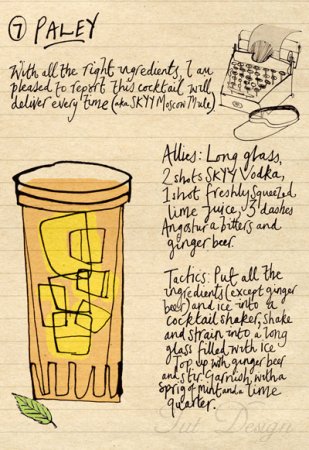 7 PALEY
With all the right ingredients, I am
pleased to report this cocktail will
deliver every time (aka SKYY Moscow Mule)
Allies: Long glass,
2 shots SKYY Vodka,
1 shot freshly squeezed
lime juice, 3 dashes
Angostura bitters and
ginger beer.
Tactics: Put all the
ingredients (except ginger
beer) and ice into a
cocktail shaker, shake
and strain into a long
glass filled with ice
Top up with ginger beer
and stir. Garnish with a
sprig of mint and a lime
quarter.
Tut Design